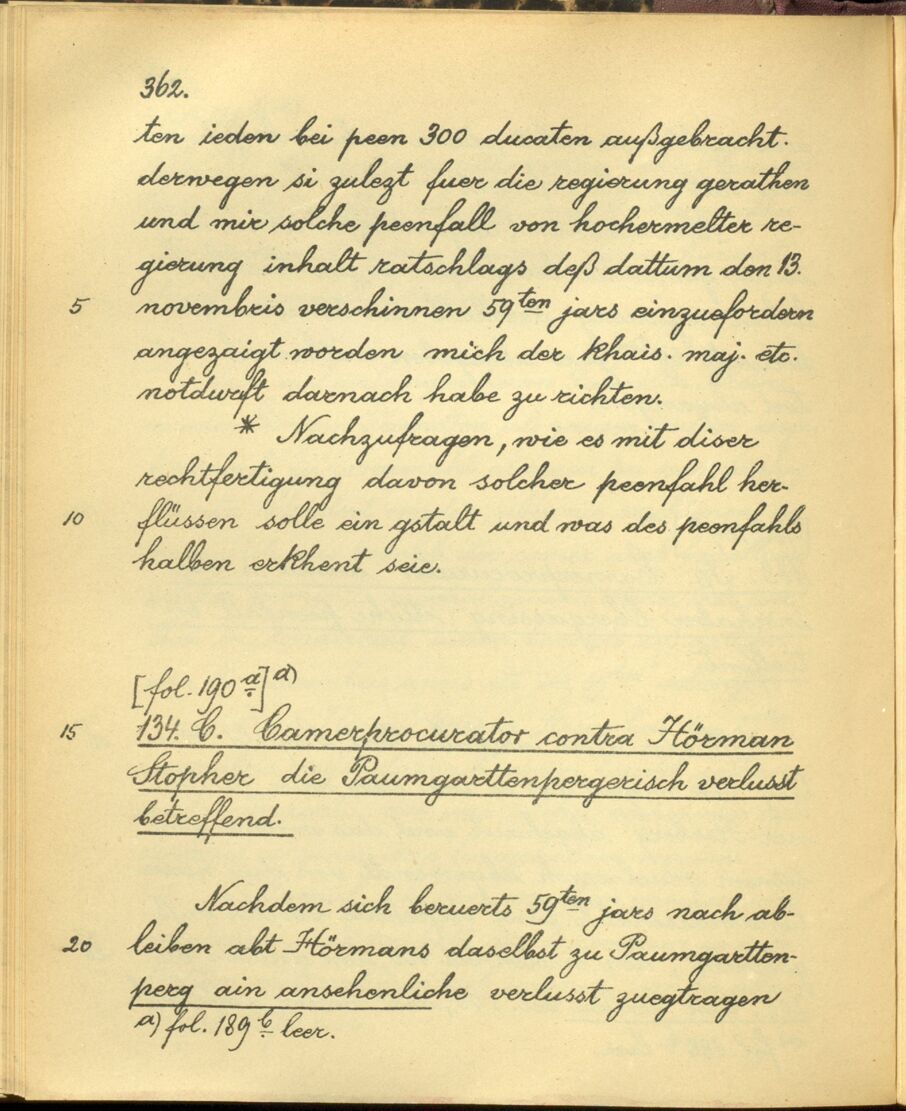 362.
ten ieden bei peen 300 ducaten außgebracht.
derwegen si zulezt fuer die regierung gerathen
und mir solche peenfall von hochermelter re-
gierung inhalt ratschlags deß dattum den 13.
5 novembris verschinnen 59ten jars einzuefordern
angezaigt worden mich der khais. maj. etc.
notdurft darnach habe zu richten.
* Nachzufragen, wie es mit diser
rechtfertigung davon solcher peenfahl her-
10 flüssen solle ein gstalt und was des peenfahls
halben erkhent seie.
[fol. 190 a.] a)
15 134. C. Camerprocurator contra Hörman
Stopher die Paumgarttenpergerisch verlusst
betreffend.
Nachdem sich beruerts 59ten jars nach ab-
20 leiben abt Hörmans daselbst zu Paumgartten-
perg ain ansehenliche verlusst zuegtragen
a) fol. 189 b. leer.